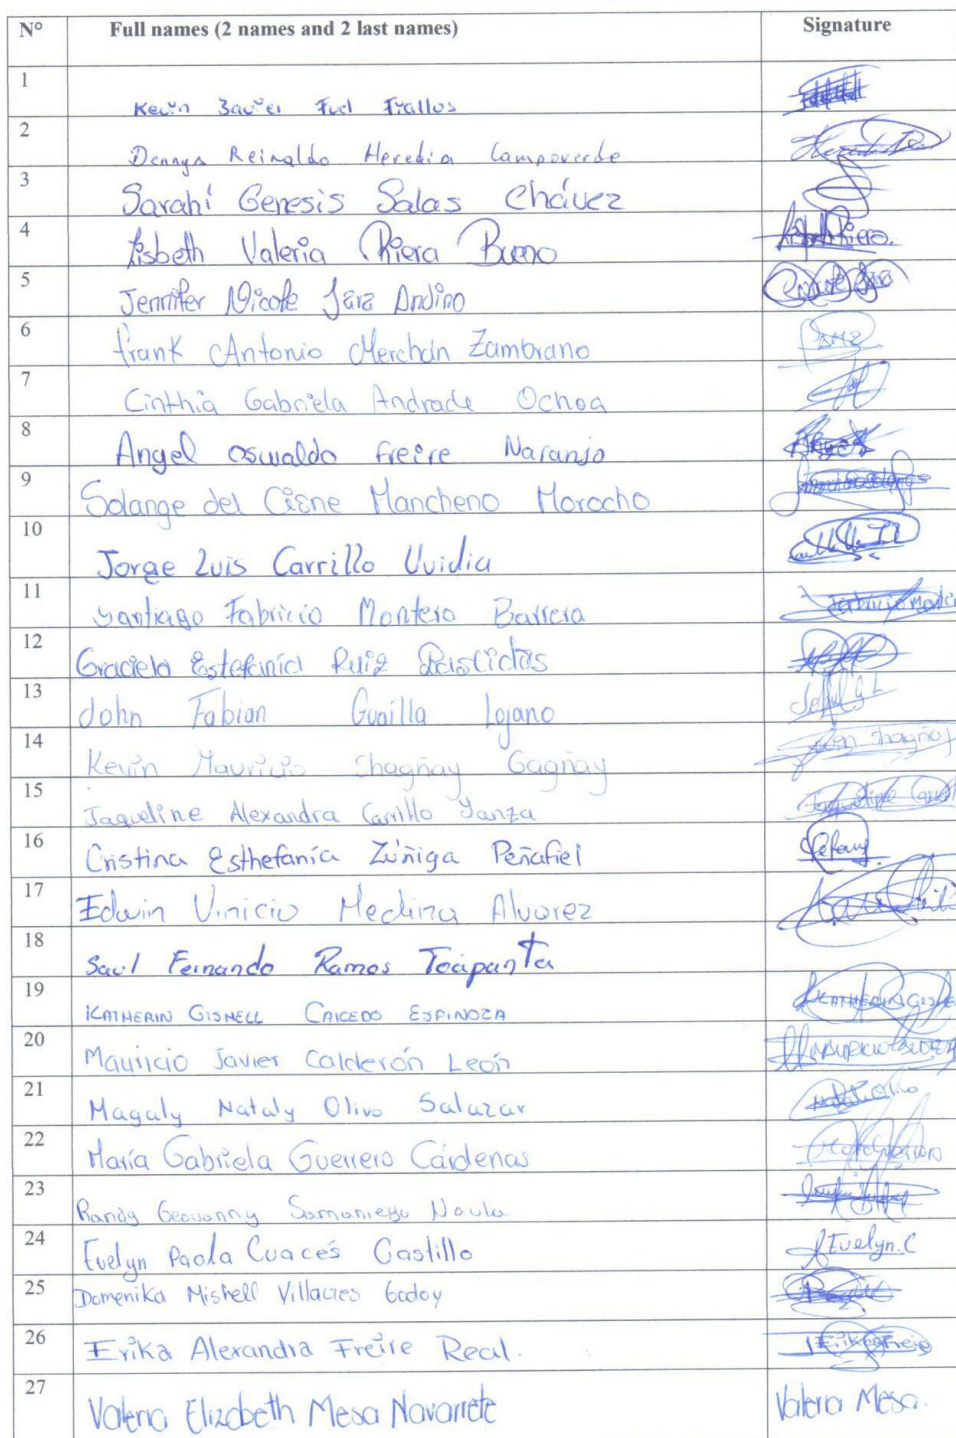 N° Full names (2 names and 2 last names) Signature
1 Kevin Javier Fuel Frallos
2 Dennys Reinaldo Heredia Campoverde
3 Sarahí Genesis Salas Chávez
4 Lisbeth Valeria Riera Bueno
5 Jennifer Nicole Jara Andino
6 frank Antonio Merchán Zambrano
7 Cinthia Gabriela Andrade Ochoa
8 Angel oswaldo freire Naranjo
9 Solange del Cisne Mancheno Morocho
10 Jorge Luis Carrillo Uvidia
11 Santiago Fabricio Montero Barrera
12 Graciela Estefanía Ruiz Bastidas
13 John Fabian Guailla Lojano
14 Kevin Mauricio Shagñay Gagñay
15 Jaqueline Alexandra Carrillo Yanza
16 Cristina Esthefanía Zúñiga Peñafiel
17 Edwin Vinicio Medina Alvarez
18 Saul Fernando Ramos Toapanta
19 KATHERIN GISHELL CAICEDO ESPINOZA
20 Mauricio Javier Calderón León
21 Magaly Nataly Olivo Salazar
22 María Gabriela Guerrero Cárdenas
23 Randy Geovanny Samaniego Naula
24 Evelyn Paola Cuacés Castillo Evelyn.C
25 Domenika Mishell Villacres Godoy
26 Erika Alexandra Freire Real.
27 Valeria Elizabeth Mesa Navarrete Valeria Mesa.